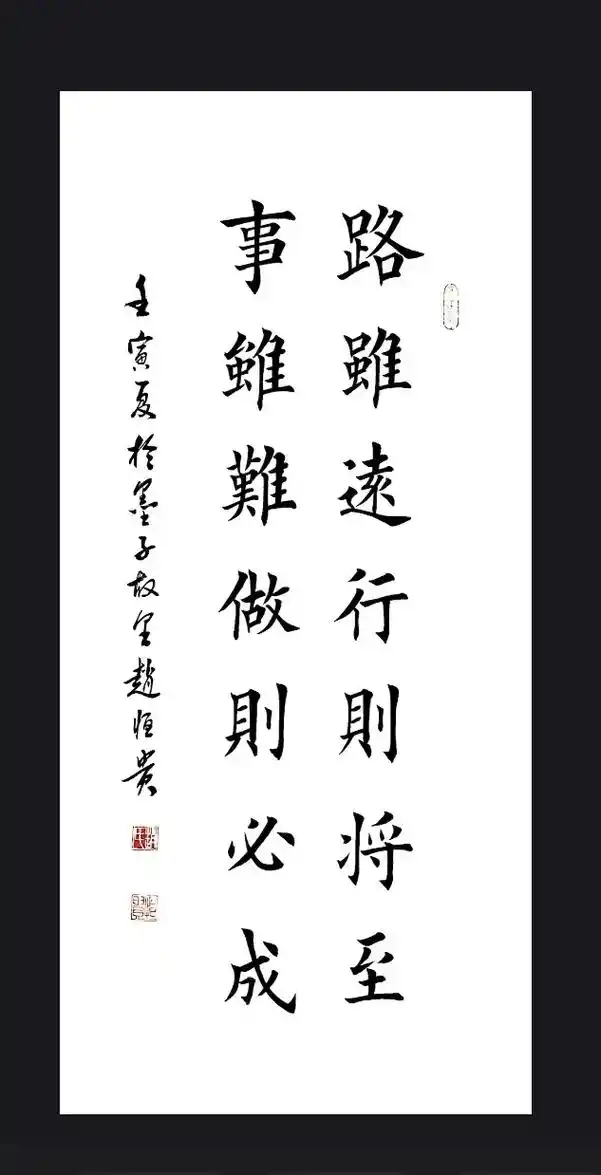 路雖遠行則将至
事雖難做則必成
壬寅夏於墨子故里趙恒贵